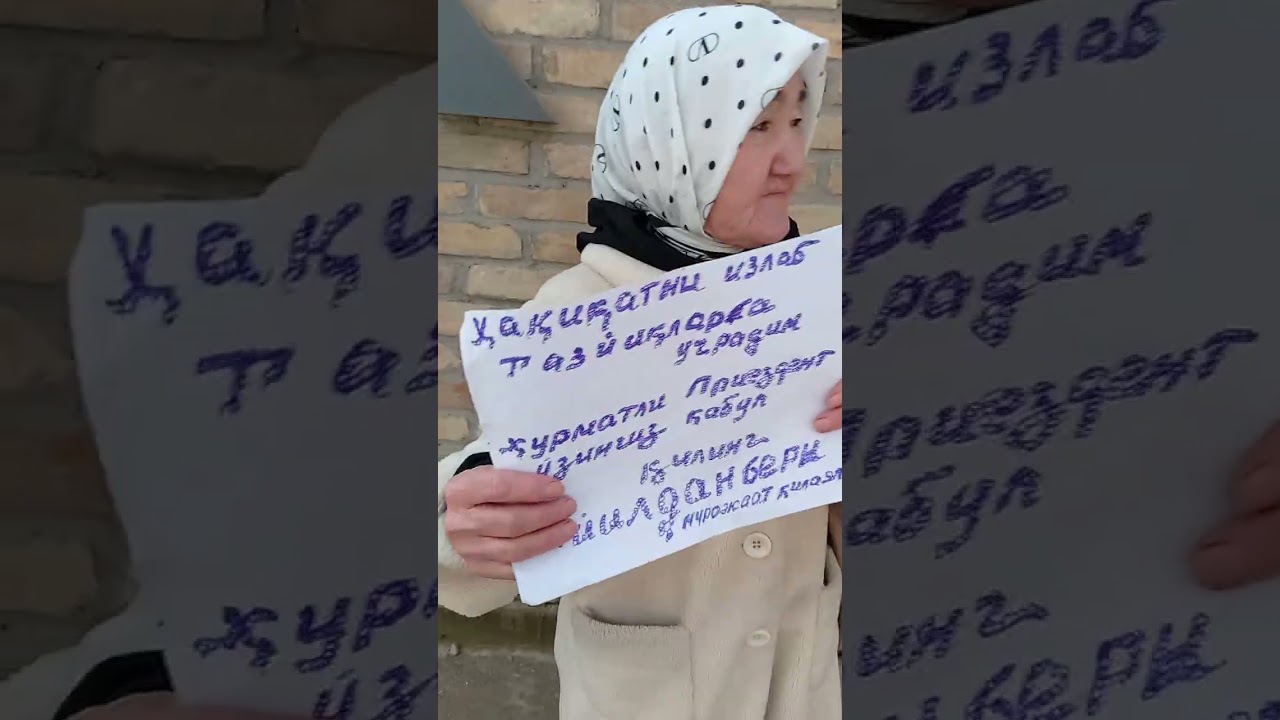 ҳақиқатни излаб
тазйиқларга
учрадим
ҳурматли Приездент
ўзингиз қабул
қилинг
йилдан бери
мурожаат қилаял